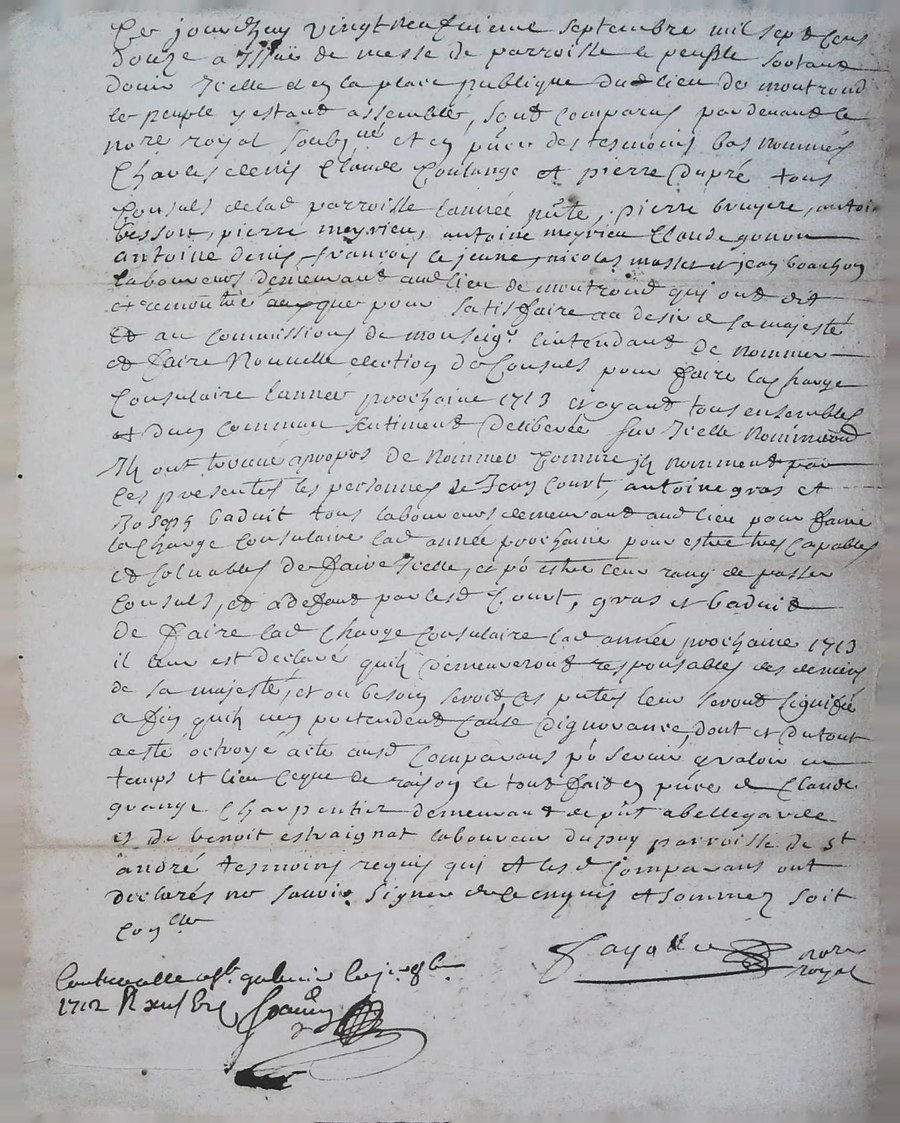 Ce jourdhuy vingt neufvieme septembre mil sept Cens
douze a issüe de messe de parroisse le peuple sortand
douir Icelle et en la place publique dud lieu de montrond
le peuple y estand assemblée, sont Comparus pardevand le
nore royal soubsné et en pñce des tesmoins bas nommés
Charles denis Claude Coulange et pierre Dupré tous
Consuls de lad parroisse lannée pñte, pierre bruyere, antoi
besson, pierre meyrieu, antoine meyrieu Claude gonon
antoine denis, francois le jeune, nicolas masset et jean bouchon
laboureurs demeurand aud lieu de montrond qui ont dit
et remontré que pour satisfaire au desir de sa majesté
Et au Commissions de monseigr lintendant de nommer
et faire Nouvelle election de Consuls pour faire la Charge
Consulaire lannee prochaine 1713 et ayand tous ensembles
et dun Commun sentiment deliberée sur Icelle
Ils ont trouvé apropos de Nommer Comme ils nomment par
Ces presentes les personnes de Jean Court, antoine gros et
Joseph baduit tous laboureurs demeurand aud lieu pour faire
la Charge Consulaire lad année prochaine pour estre tres Capables
et soluables de faire Icelle, et pr estre leur rang de passer
Consuls, et a defaut par lesd Court, gros et baduit
De faire lad Charge Consulaire lad année prochaine 1713
il leur est declaré quils demeureront responsables des deniers
de sa majesté, et ou besoin seroit Ces pñtes leur seront signifié
afin quils nen pretendent Cause dignorance, dont et du tout
a esté octroyé acte ausd Comparans pr servir et valoir en
temps et lieu Ceque de raison le tout fait en pñce de Claude
grange Charpentier demeurand de pñt a bellegarde
et de benoit estraignat laboureur du puy parroisse de st
andré tesmoins requis qui et les d Comparans ont
declarés ne sauoir signer de ce enquis et sommez soit
Conllé
nore
royal
Controlle
1712